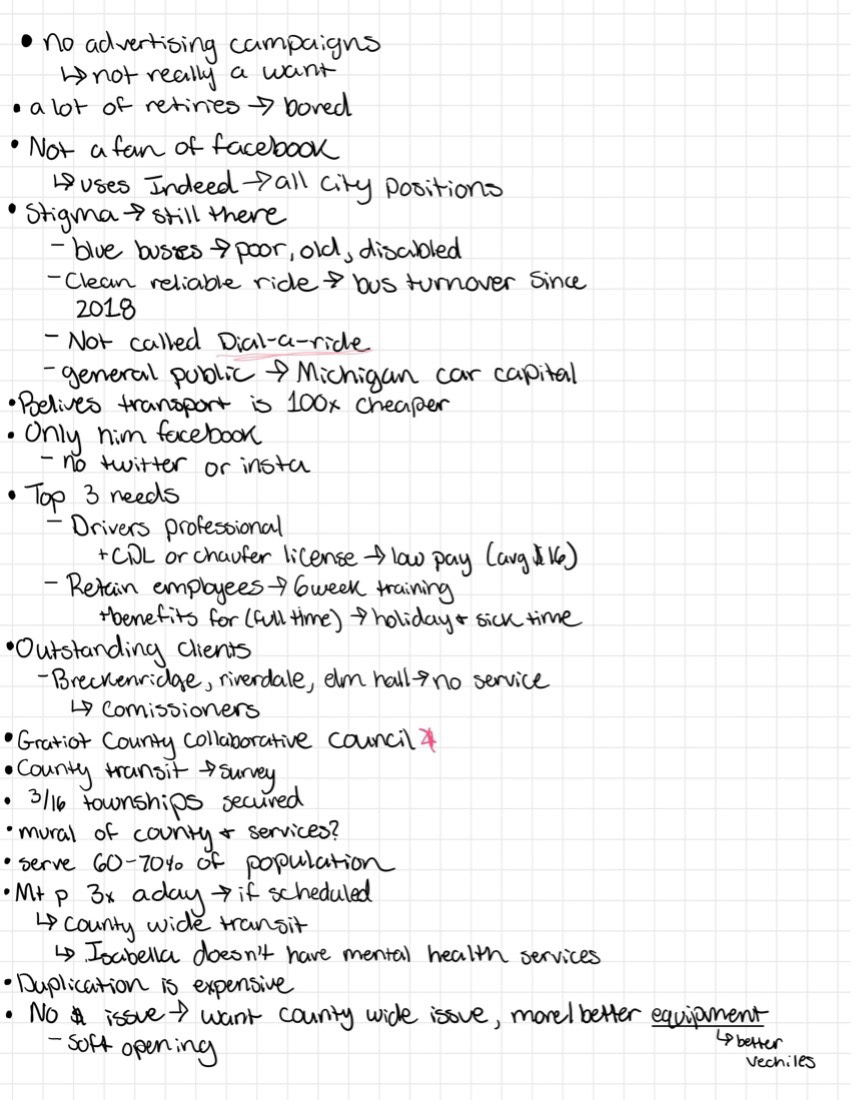 • no advertising campaigns
↳ not really a want
• a lot of retiries → bored
• Not a fan of facebook
↳ uses Indeed → all city positions
• Stigma → still there
- blue buses → poor, old, disabled
- Clean reliable ride → bus turnover since
2018
- Not called Dial-a-ride
- general public → Michigan car capital
• Belives transport is 100x cheaper
• Only him facebook
- no twitter or insta
• Top 3 needs
- Drivers professional
+ CDL or chaufer license → low pay (avg $16)
- Retain employees → 6 week training
+ benefits for (full time) → holiday + sick time
• Outstanding clients
- Breckenridge, riverdale, elm hall → no service
↳ Comissioners
• Gratiot County Collaborative council
• County transit → survey
• 3/16 townships secured
• mural of county + services?
• serve 60-70% of population
• Mt p 3x a day → if scheduled
↳ County wide transit
↳ Isabella doesn't have mental health services
• Duplication is expensive
• No $ issue → want county wide issue, more/better equipment
↳ better
vechiles
- soft opening